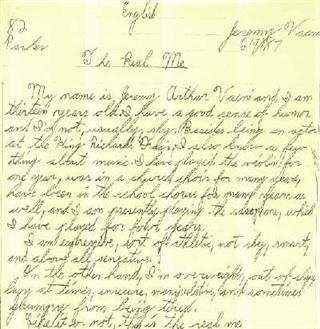 English
82
Jeremy Vaeni
Parker
6/9/87
The Real Me
My name is Jeremy Arthur Vaeni and I am
thirteen years old. I have a good sense of humor
and I'm not, usually, shy. Besides being an actor
at the King Richard's Fair, I also know a few
things about music. I have played the violin for
one year, was in a church choir for many years,
have been in the school chorus for many years as
well, and I am presently playing the saxophone, which
I have played for four years.
I am expressive, sort of athletic, not shy, smart,
and above all, sensative.
On the other hand, I'm overweight, out of shape,
lazy at times, insecure, manipulative, and sometimes
grumpy from being tired.
Like it or not, this is the real me.